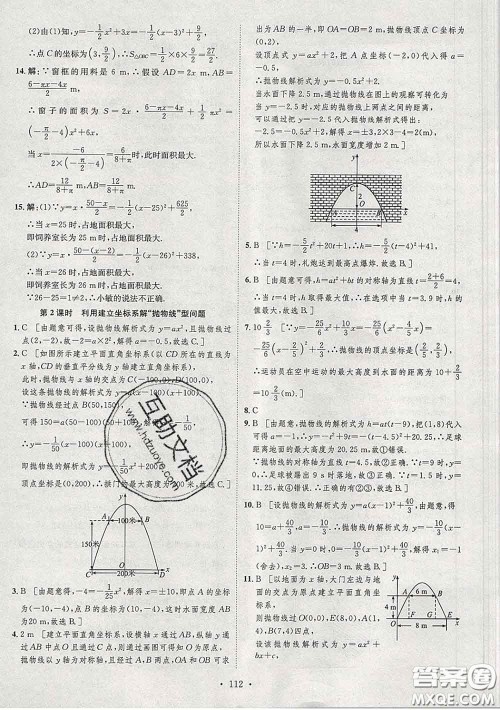 (2)由(1),得 y=-1/2x²+3x=-1/2(x-3)²+9/2,
∴点 C 的坐标为(3,9/2),∴S△OBC=1/2×6×9/2=27/2.
14.解:∵窗框的用料是 6 m,∴假设 AD=2x,∴AB=
(6-πx-4x)/2,
∴窗子的面积为 S=2x·(6-πx-4x)/2+1/2πx²=
(-π/2-4)x²+6x,
当 x=-6/(2×(-π/2-4))=6/(8+π)时,此时面积最大.
∴AD=12/(8+π)时,面积最大.
15.解:(1)∵y=x·(50-x)/2=-1/2(x-25)²+625/2,
∴当 x=25 时,占地面积最大.
即饲养室长为 25 m 时,占地面积最大.
(2)∵y=x·(50-(x-2))/2=-1/2(x-26)²+338,
∴当 x=26 时,占地面积最大.
即饲养室长为 26 m 时,占地面积最大.
∵26-25=1≠2,∴小敏的说法不正确.
第 2 课时 利用建立坐标系解“抛物线”型问题
1.C [由题意可得,设抛物线解析式为 y=ax²,且抛物线过
点(2,-2),故-2=a×2²,解得:a=-0.5,故选 C.]
2.C [如图所示建立平面直角坐标系(以 CD 所在的直线
为 x 轴,CD 的垂直平分线为 y 轴建立直角坐标系),
则抛物线与 x 轴的交点为 C(-100,0),D(100,0),
设这条抛物线的解析式为 y=a(x-100)(x+100),
∵抛物线经过点 B(50,150),
可得 150=a(50-100)(50+100).解得 a=-1/50,
∴y=-1/50(x-100)(x+100),
即抛物线的解析式为 y=-1/50x²+200,
顶点坐标是(0,200),∴拱门的最大高度为 200 米.故
选 C.]
y
A 100米 B
150米
C O 200米 D x
3.B [由题意得,-4=-1/25x²,解得 x=±10,即点 A(-10,
-4),点 B(10,-4),这时水面宽度 AB 为
20 m.故选 B.]
4.2 m [建立平面直角坐标系,设横轴 x 通过 AB,纵轴 y
通过 AB 中点 O 且通过 C 点,则通过画图可得知 O 为原点,
抛物线以 y 轴为对称轴,且经过 A,B 两点,OA 和 OB 可求
出为 AB 的一半,即 OA=OB=2,抛物线顶点 C 坐标为
(0,2),
设顶点式 y=ax²+2,把 A 点坐标(-2,0)代入得 a
=-0.5,
∴抛物线解析式为 y=-0.5x²+2,
当水面下降 2.5 m,通过抛物线在图上的观察可转化为
当 y=-2.5 时,对应的抛物线上两点之间的距离,
可以通过把 y=-2.5 代入抛物线解析式得出:
-2.5=-0.5x²+2,解得:x=±3,2×3-4=2(m),
所以水面下降 2.5 m,水面宽度增加 2 m.]
y
C
2
A O B x
4
5.B [∵h=-5/2t²+20t+1,∴h=-5/2(t-4)²+41,
∴当 t=4 时,礼炮达到最高点.故选 B.]
6.C [由题意可知,h(2)=h(6),则函数的对称轴为直线 t=(2+6)/2
=4,故在 t=4 时,小球的高度最高,∵题中给的四个数据只
有 C 中的 4.2 最接近 4 秒,∴当 t=4.2 时,
h 有最大值,故选 C.]
7.10 2/3 [∵y=-25/6x²+10/3x=-25/6(x²-4/5x)=
-25/6(x-2/5)²+2/3,
∴运动员在空中运动的最大高度离水面为:10+2/3
=10 2/3(m).]
8.C
9.B [由题意,抛物线的解析式为 y=at(t-9),把(1,8)代
入可得 a=-1,∴y=-t²+9t=-(t-4.5)²+20.25,∴足球
距离地面的最大高度为 20.25 m,故①错误,
∴抛物线的对称轴为直线 t=4.5,故②正确,
∵t=9 时,y=0,∴足球被踢出 9 s 时落地,故③正确,
∵t=1.5 时,y=11.25,故④错误.故选 B.]
10.B [设抛物线的解析式为 y=a(x-1)²+40/3,把点
A(0,10)代入 a(x-1)²+40/3,得 a(0-1)²+40/3=10,解
得 a=-10/3,因此抛物线解析式为 y=-10/3(x-1)²
+40/3,当 y=0 时,-10/3(x-1)²+40/3=0,解得 x=3 或 x=-1
(舍去),即 OB=3 米.故选 B.]
11.B [以地面为 x 轴,大门左边与地面
的交点为原点建立平面直角坐标系,
则抛物线过 O(0,0),E(8,0),
A(1,4),B(7,4)四点,
设该抛物线解析式为 y=ax²+
bx+c,
y
A 6 m B
4 m
O F G E x
8 m
互助文档
www.hdzuoye.com
·112·
答案圈
MXQE.COM